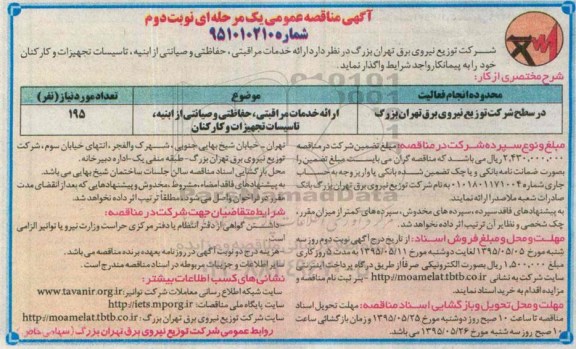 آگهی مناقصه عمومی یک مرحله ای نوبت دوم
شماره ۹۵۱۰۱۰۲۱۰
شرکت توزیع نیروی برق تهران بزرگ در نظر دارد ارائه خدمات مراقبتی، حفاظتی و صیانتی از ابنیه، تاسیسات تجهیزات و کارکنان
خود را به پیمانکار واجد شرایط واگذار نماید.
شرح مختصری از کار:
محدوده انجام فعالیت
موضوع
تعداد مورد نیاز (نفر)
در سطح شرکت توزیع نیروی برق تهران بزرگ
ارائه خدمات مراقبتی، حفاظتی و صیانتی از ابنیه،
تاسیسات تجهیزات و کارکنان
۱۹۵
مبلغ و نوع سپرده شرکت در مناقصه: مبلغ تضمین شرکت در مناقصه
۲،۴۳۰،۰۰۰،۰۰۰ ریال می باشد که مناقصه گران می بایست مبلغ تضمین را
بصورت ضمانت نامه بانکی و یا چک تضمین شده بانکی یا واریز وجه به حساب
جاری شماره ۰۱۰۱۸۰۱۱۷۱۰۰۴ به نام شرکت توزیع نیروی برق تهران بزرگ بانک
صادرات شعبه ملاصدرا ارائه نمایند.
به پیشنهادهای فاقد سپرده، سپرده های مخدوش، سپرده های کمتر از میزان مقرر،
چک شخصی و نظایر آن ترتیب اثر داده نخواهد شد.
مهلت و محل و مبلغ فروش اسناد: از تاریخ درج آگهی نوبت دوم روز سه
شنبه مورخ ۱۳۹۵/۰۵/۰۵ لغایت دوشنبه مورخ ۱۳۹۵/۰۵/۱۱ به مدت ۵ روز کاری
مبلغ ۱،۵۰۰،۰۰۰ ریال بصورت الکترونیکی صرفا از طریق درگاه پرداخت اینترنتی
سایت شرکت به نشانی http://moamelat.tbtb.co.ir - تیتر ثبت نام مناقصه و
مزایده اقدام به خرید اسناد نمایند.
مهلت و محل تحویل و بازگشایی اسناد مناقصه: مهلت تحویل اسناد
مناقصه تا ساعت ۱۰ صبح روز دوشنبه مورخ ۱۳۹۵/۰۵/۲۵ و زمان بازگشائی ساعت
۱۰ صبح روز سه شنبه مورخ ۱۳۹۵/۰۵/۲۶ می باشد.
تهران - خیابان شیخ بهایی جنوبی، شهرک والفجر، انتهای خیابان سوم، شرکت
توزیع نیروی برق تهران بزرگ - طبقه منفی یک - اداره دبیرخانه.
محل بازگشایی اسناد مناقصه سالن جلسات ساختمان شیخ بهایی می باشد.
به پیشنهادهای فاقد امضاء، مشروط، مخدوش و پیشنهادهایی که بعد از انقضای مدت
مقرر در فراخوان واصل می شود، مطلقا ترتیب اثر داده نخواهد شد.
شرایط متقاضیان جهت شرکت در مناقصه:
داشتن گواهی از دفتر انتظام یا دفتر مرکزی حراست وزارت نیرو یا توانیر الزامی
می باشد.
هزینه درج دو نوبت آگهی در روزنامه بعهده برنده مناقصه می باشد.
سایر اطلاعات و جزییات مربوطه در اسناد مناقصه مندرج است.
نشانی های کسب اطلاعات بیشتر:
سایت شبکه اطلاع رسانی معاملات شرکت توانیر: www.tavanir.org.ir
سایت پایگاه ملی مناقصات: http://iets.mporg.ir
سایت شرکت توزیع نیروی برق تهران بزرگ: http://moamelat.tbtb.co.ir
روابط عمومی شرکت توزیع نیروی برق تهران بزرگ (سهامی خاص)